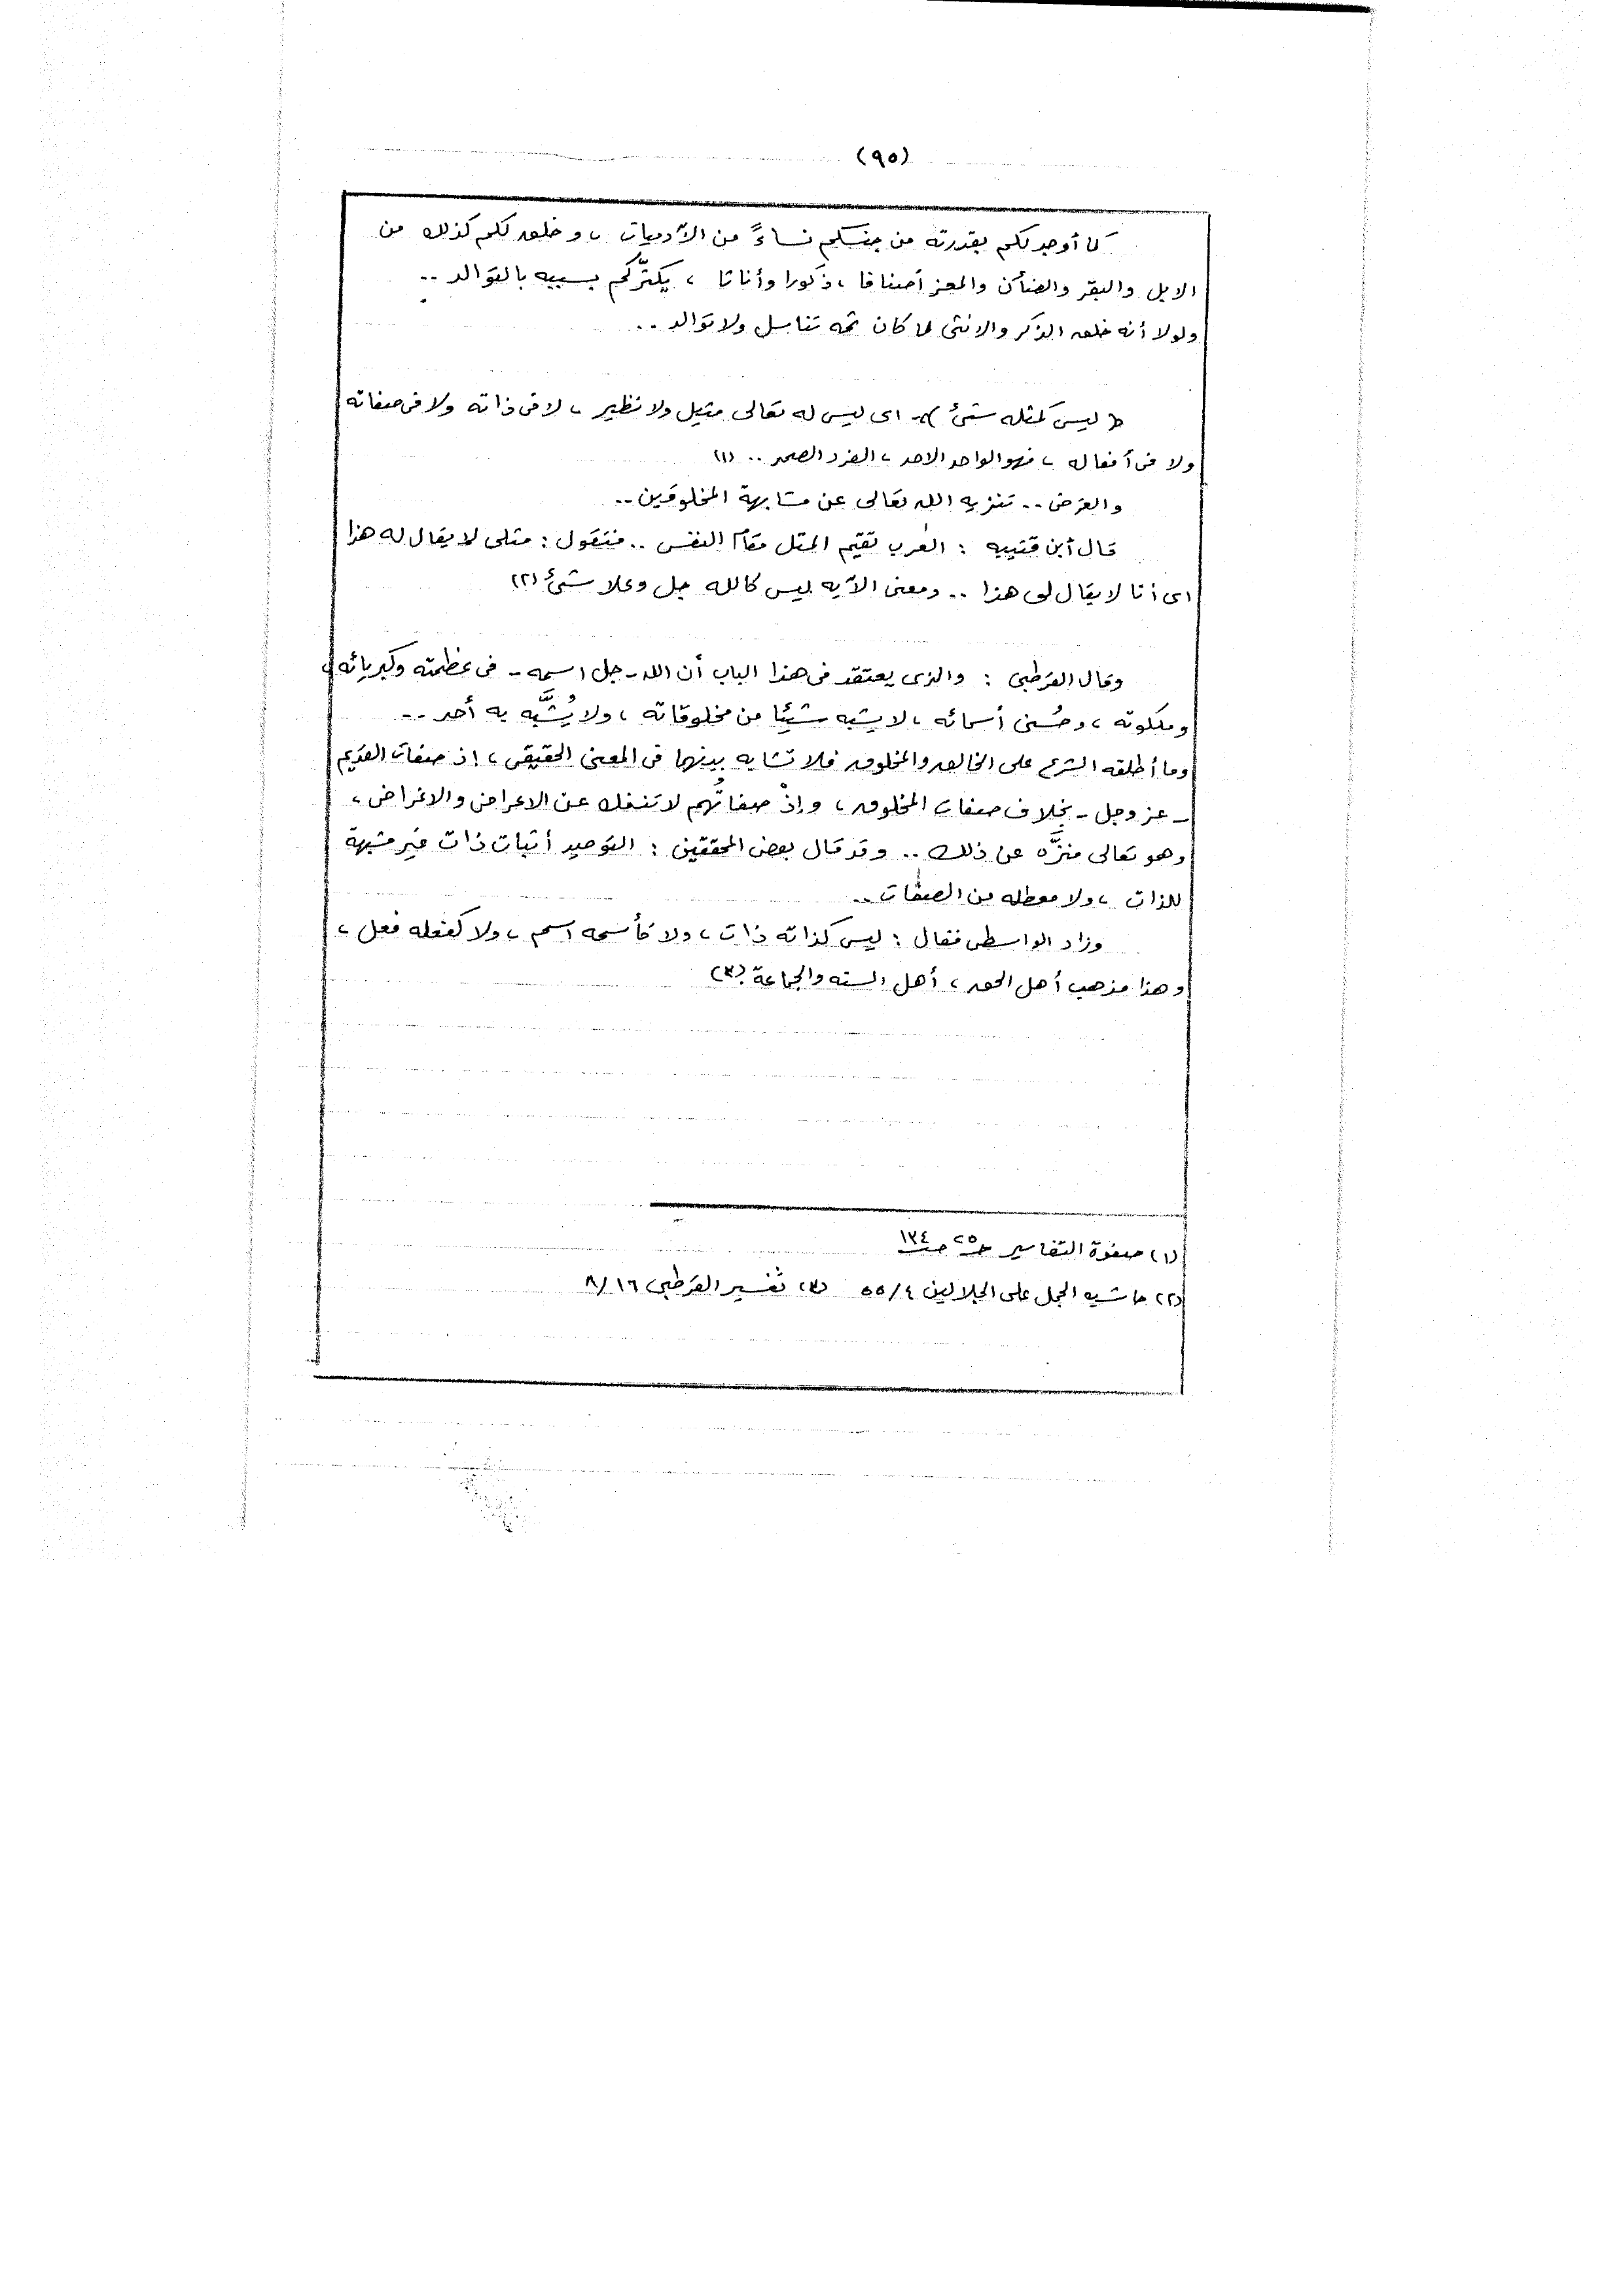 (٩٥)
كما أوجد لكم بقدرته من جنسكم نساءً من الآدميات ، وخلق لكم كذلك من
الابل والبقر والضأن والمعز أصنافا ، ذكورا وأناثا ، يكثّركم بسببه بالتوالد ..
ولولا أنه خلق الذكر والانثى لما كان ثمه تناسل ولا توالد ..
﴿ ليس كمثله شئ ﴾ اى ليس له تعالى مثيل ولا نظير ، لا فى ذاته ولا فى صفاته
ولا فى أفعاله ، فهو الواحد الاحد ، الفرد الصمد .. (١)
والغرض .. تنزيه الله تعالى عن مشابهة المخلوقين ..
قال أبن قتيبه : العرب تقيم المثل مقام النفس .. فتقول : مثلى لا يقال له هذا
اى أنا لا يقال لى هذا .. ومعنى الآيه ليس كالله جل وعلا شئ (٢)
وقال القرطبى : والذى يعتقد فى هذا الباب أن الله - جل اسمه - فى عظمته وكبريائه ،
وملكوته ، وحُسنى أسمائه ، لا يشبه شيئا من مخلوقاته ، ولا يُشبَّه به أحد ..
وما أطلقه الشرع على الخالق والمخلوق فلا تشابه بينهما فى المعنى الحقيقى ، إذ صفات القديم
- عز وجل - بخلاف صفات المخلوق ، وإذْ صفاتُهم لا تنفك عن الاعراض والاغراض ،
وهو تعالى منزَّه عن ذلك .. وقد قال بعض المحققين : التوحيد أثبات ذات غير مشبهة
للذات ، ولا معطله من الصفات ..
وزاد الواسطى فقال : ليس كذاته ذات ، ولا كأسمه اسم ، ولا كفعله فعل ،
وهذا مذهب أهل الحق ، أهل السنه والجماعة (٣)
(١) صفوة التفاسير حـ ٢٥ صـ ١٣٤
(٢) حاشيه الجمل على الجلالين ٥٥/٤ (٣) تفسير القرطبى ٨/١٦